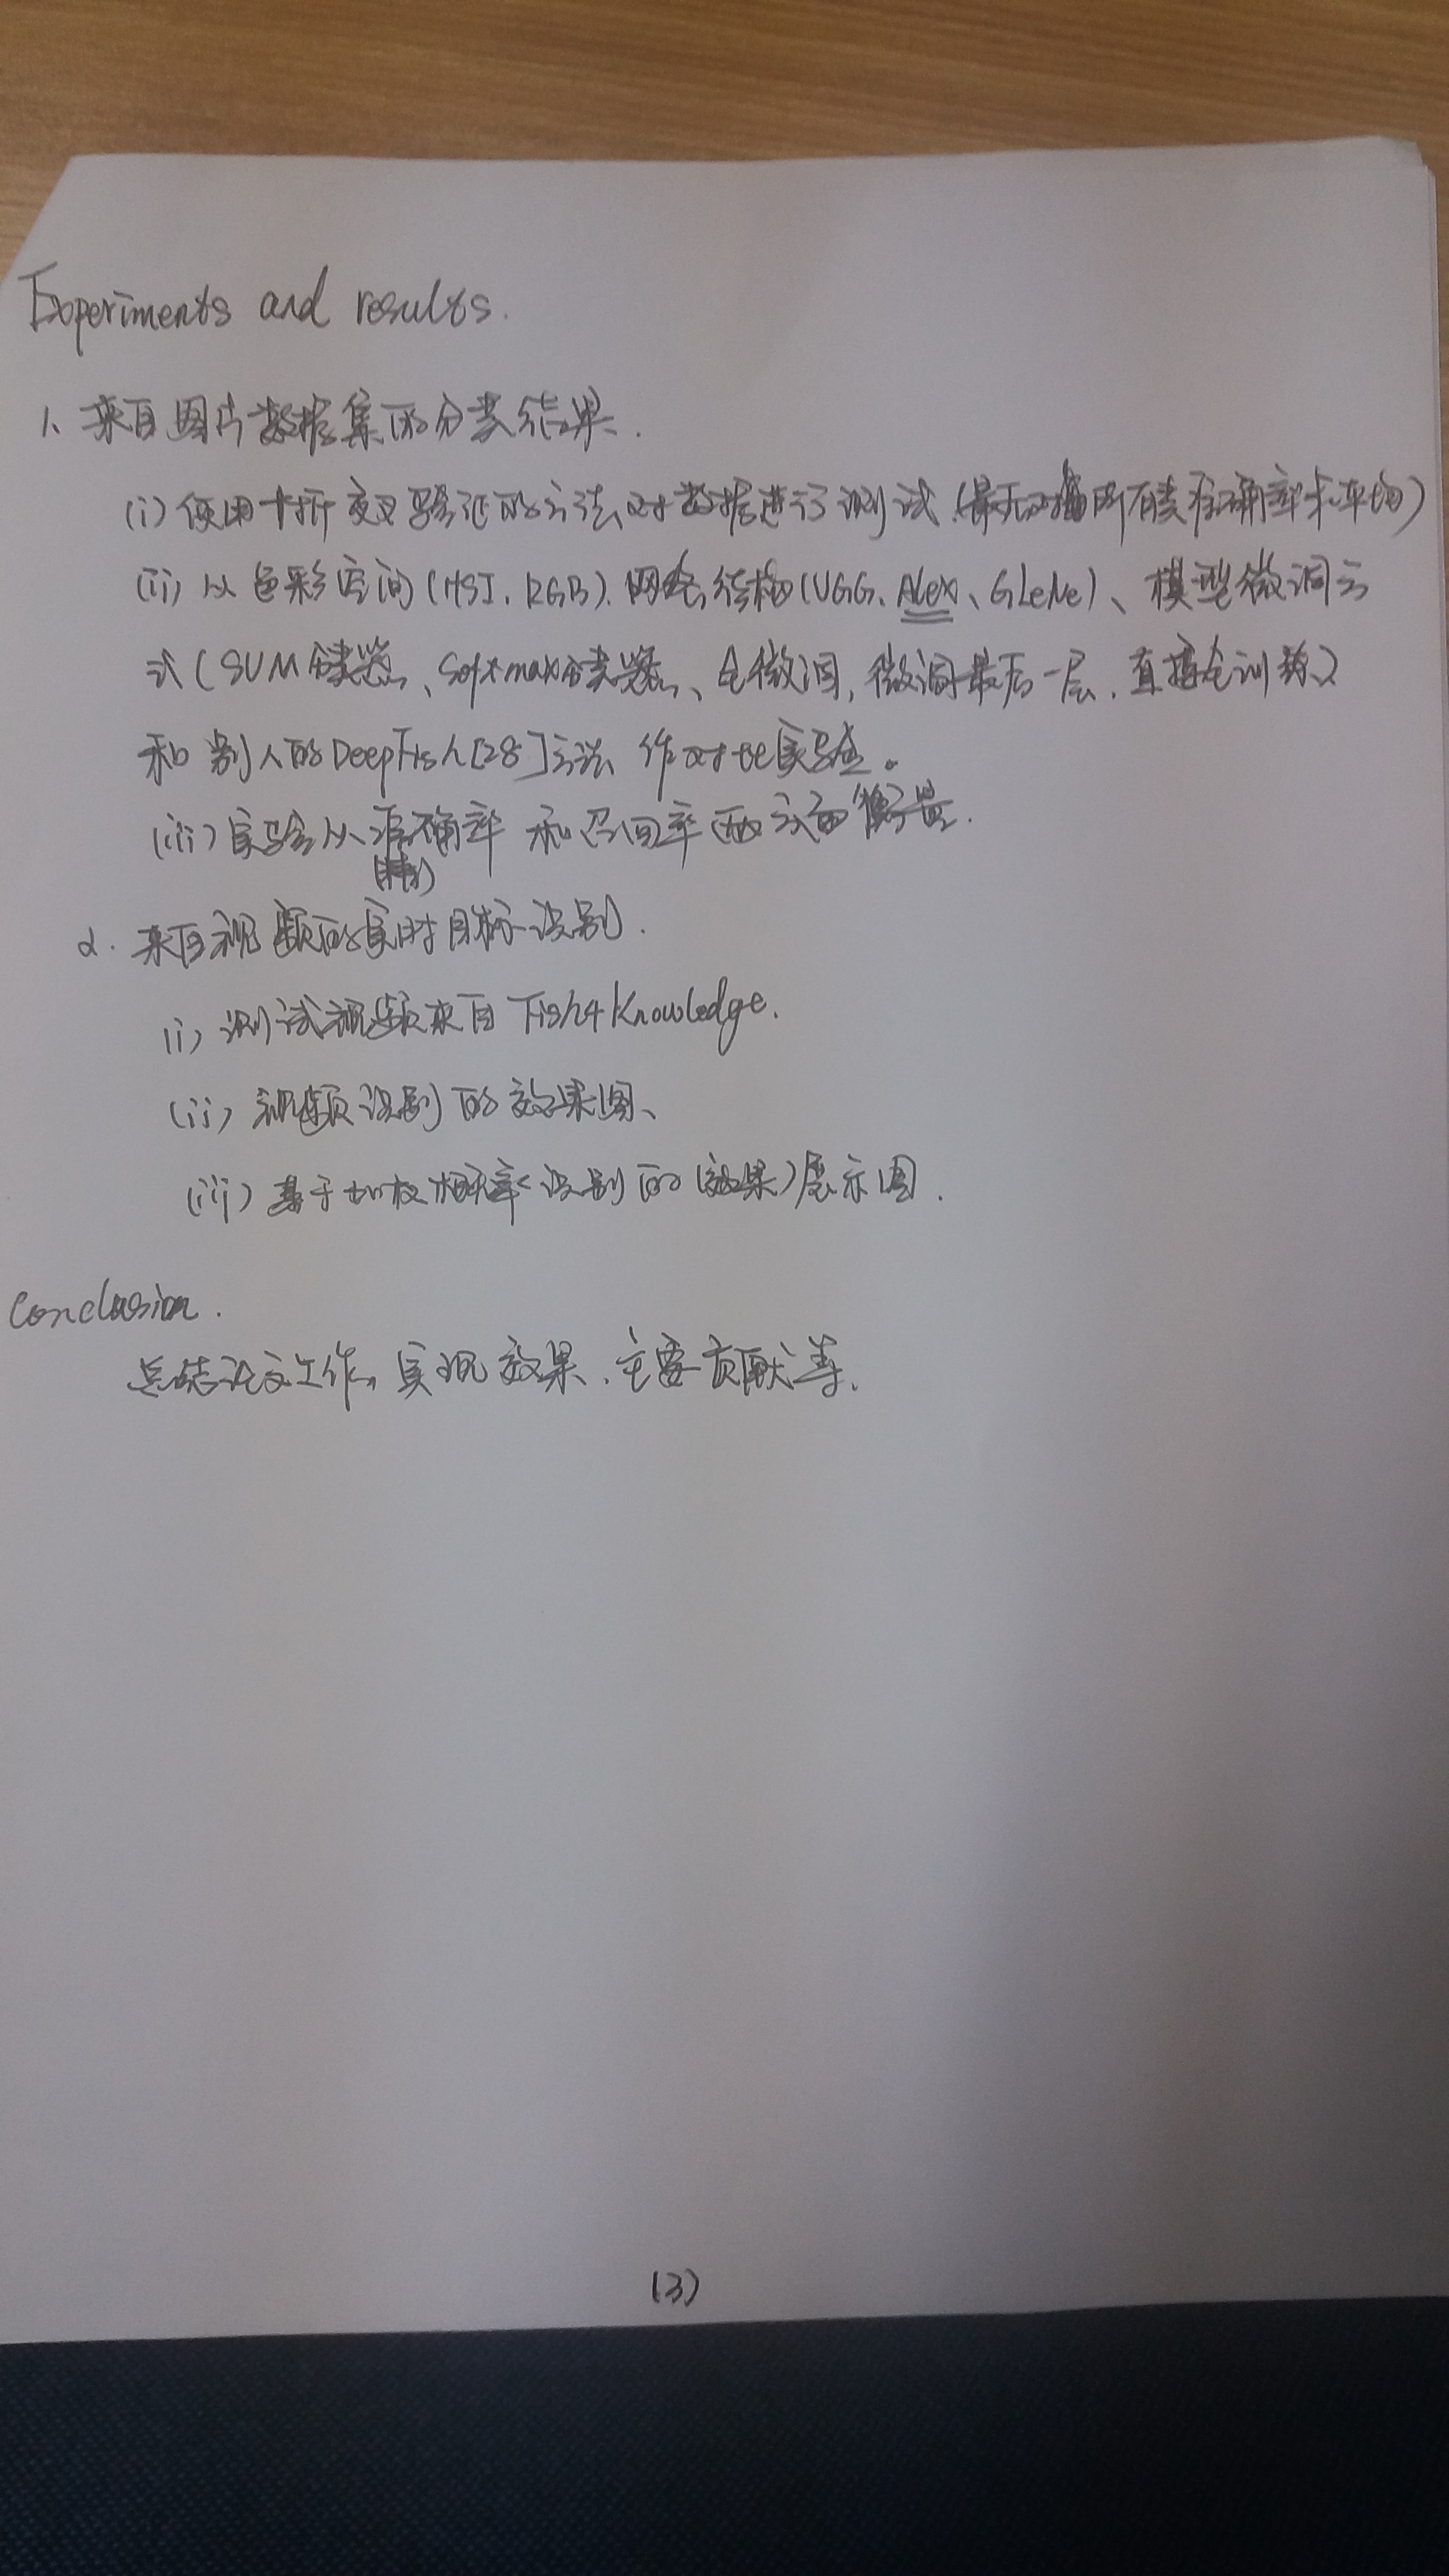 Experiments and results.
1、来自图片数据集的分类结果.
(i) 使用十折交叉验证的方法对数据进行了测试.(最后对所有类准确率求平均)
(ii) 从色彩空间(HSI、RGB)、网络结构(VGG、Alex、GLeNe)、模型微调方
式(SVM分类器、Softmax分类器、全微调,微调最后一层、直接全训练)
和别人的DeepFish[28]方法作对比实验。
(iii) 实验从准确率和召回率两方面衡量.
(精)
2. 来自视频的实时目标识别.
(i) 测试视频来自Fish4Knowledge.
(ii) 视频识别的效果图、
(iii) 基于加权概率识别的(效果)展示图.
Conclusion.
总结论文工作,实现效果、主要贡献等.
(3)